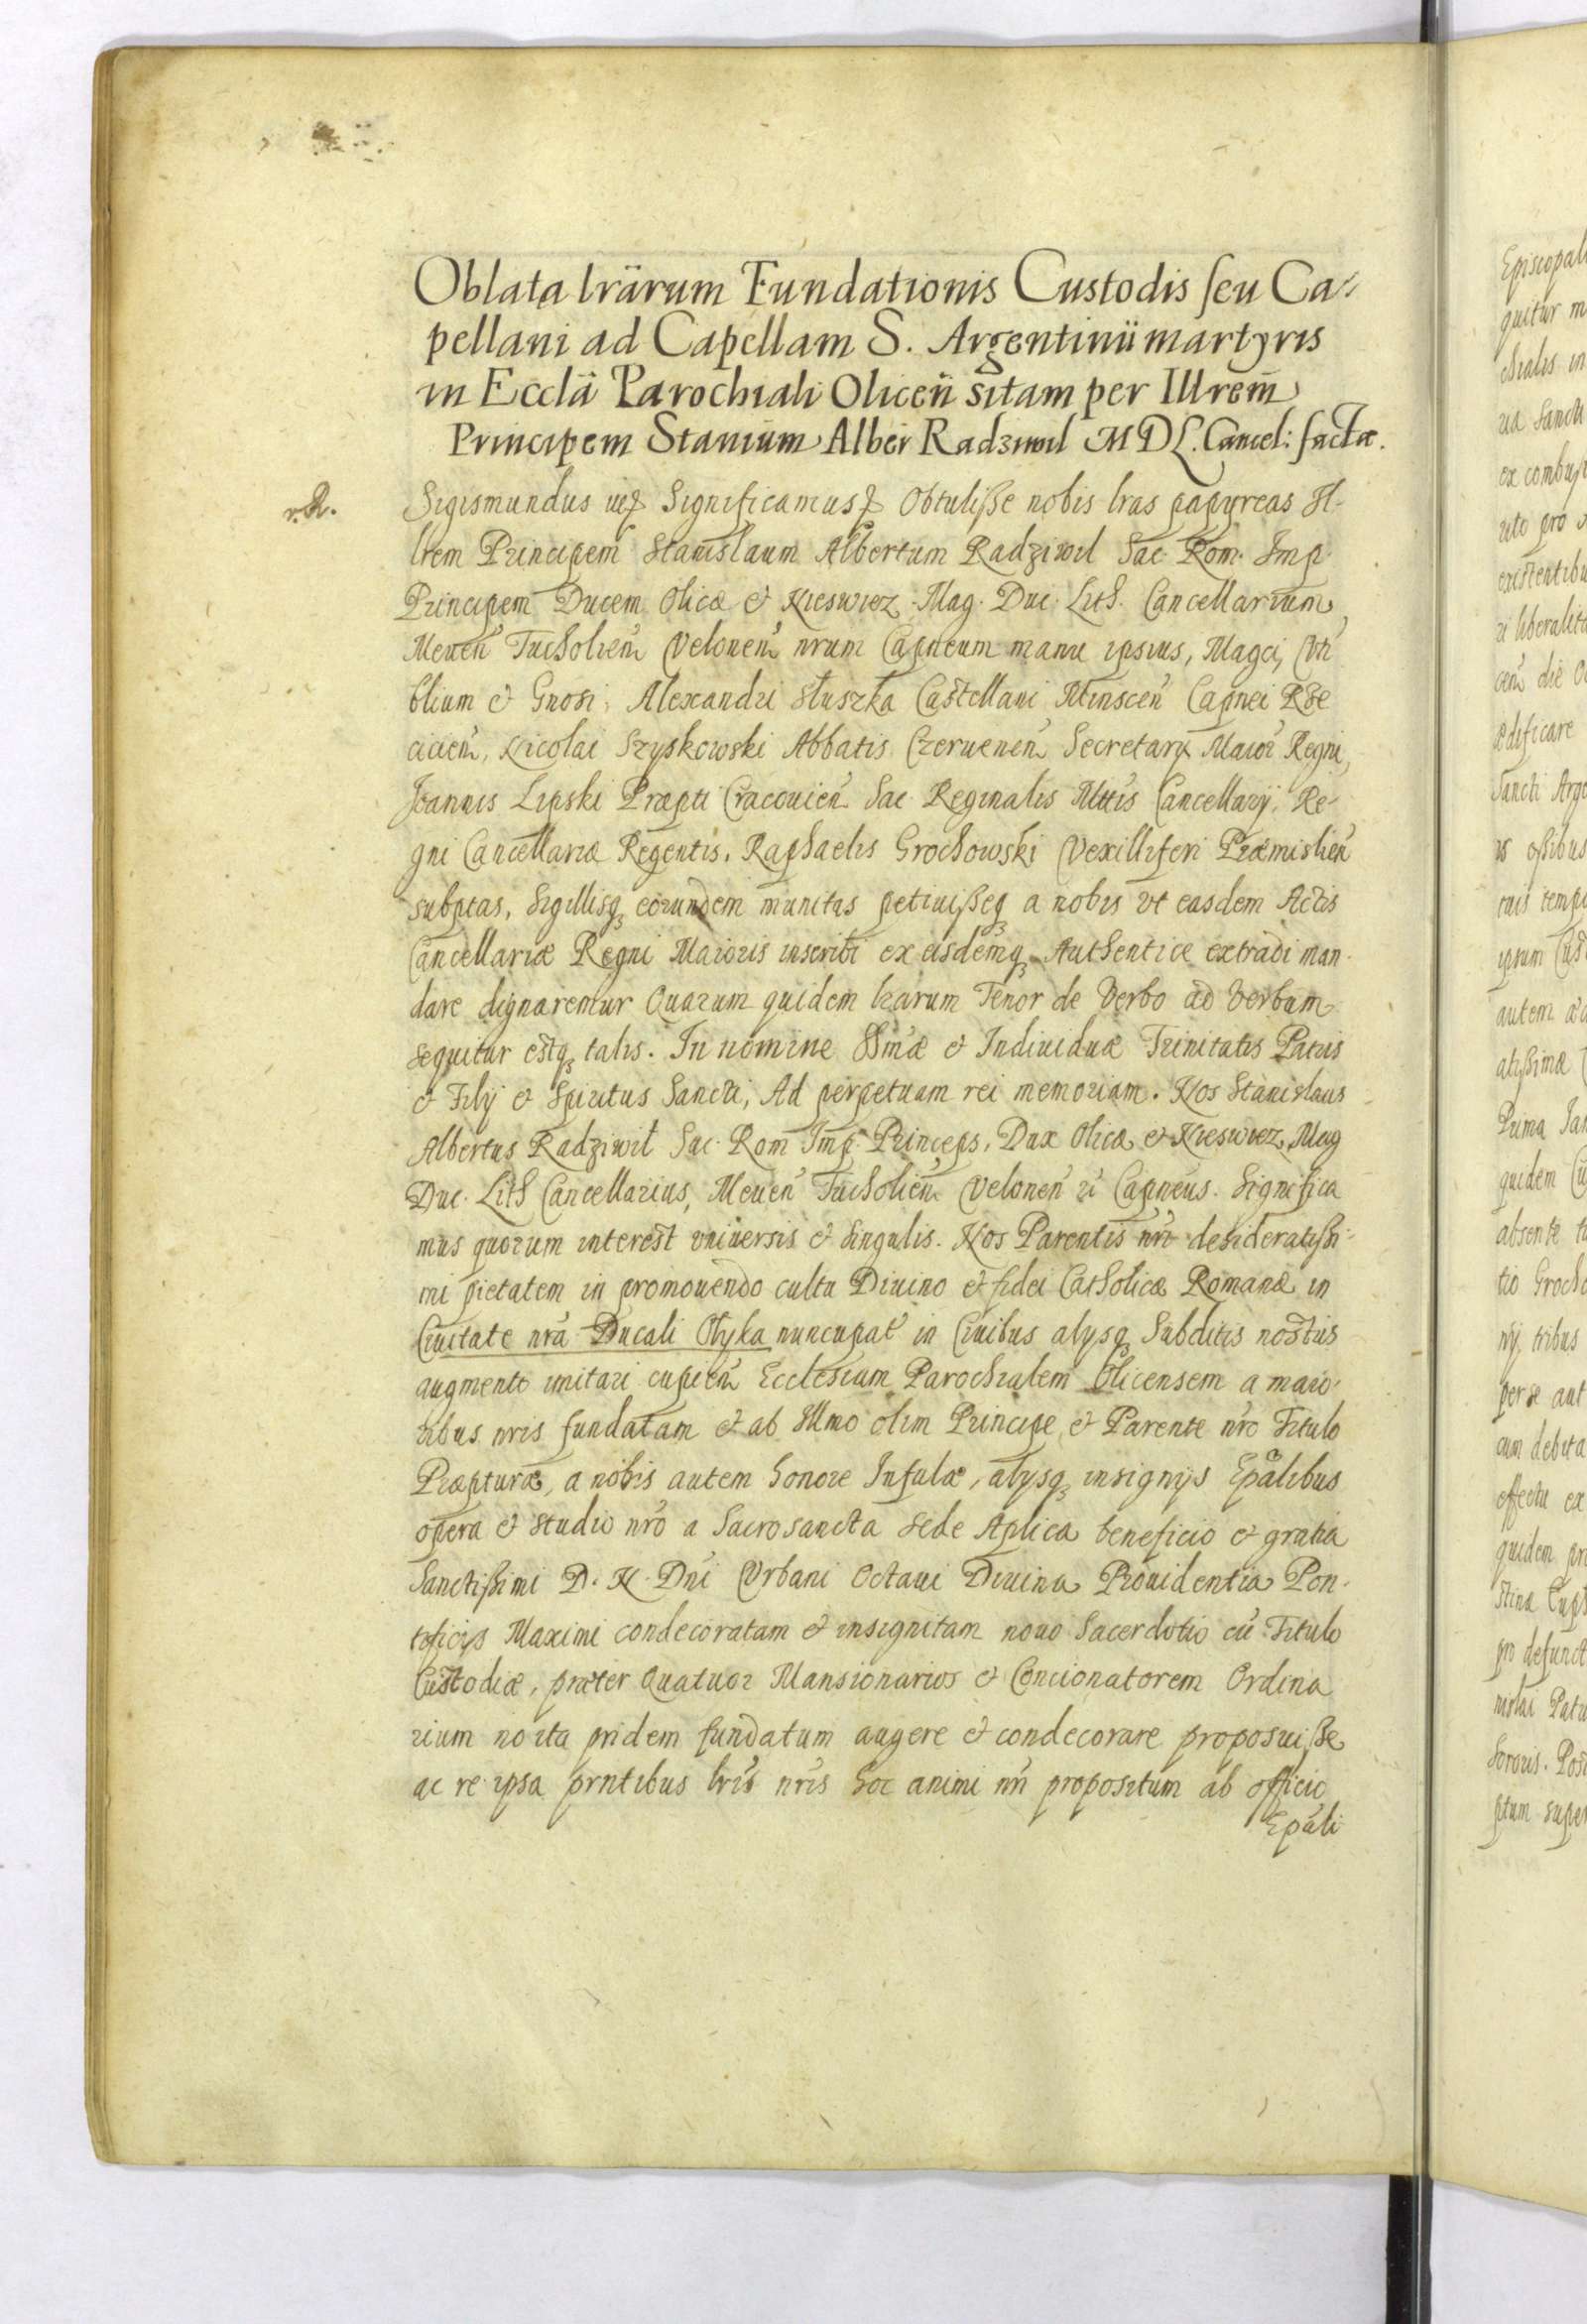 Oblata lrarum Fundationis Custodis seu Ca-
pellani ad Capellam S. Argentinii martyris
in Eccla Parochiali Olicen sitam per Illrem
Principem Stanium Alber Radziwil M D L. Cancel: factae.
r. R.
Sigismundus Significamus Obtulisse nobis lras papyreas Il-
lrem Principem Stanislaum Albertum Radziwil Sac. Rom. Imp.
Principem Ducem Olicae et Nieswiez Mag. Duc. Lith. Cancellarium
Meuen Tucholien Velonen nrum Capneum manu ipsius, Magci,
blium et Gnosi, Alexandri Słuszka Castellani Minscen Capnei Rze
cicen, Nicolai Szyskowski Abbatis Czeruenen Secretarij Maior Regni,
Joannis Lipski Praepti Cracouien Sac. Reginalis Mttis Cancellarij, Re-
gni Cancellariae Regentis, Raphaelis Grochowski Vexilliferi Praemislien
subptas, Sigillisq eorundem munitas petiuisseq a nobis vt easdem Actis
Cancellariae Regni Maioris inscribi ex eisdemq Authentice extradi man-
dare dignaremur Quarum quidem lrarum Tenor de Verbo ad Verbum
sequitur estq talis. In nomine SSmae et Indiuiduae Trinitatis Patris
et Filij et Spiritus Sancti, Ad perpetuam rei memoriam. Nos Stanislaus
Albertus Radziwil Sac. Rom Imp. Princeps, Dux Olicae et Nieswiez, Mag
Duc. Lith Cancellarius, Meuen Tucholien Velonen Capneus. Significa
mus quorum interest vniuersis et singulis. Nos Parentis nri desideratissi-
mi pietatem in promouendo cultu Diuino et fidei Catholicae Romanae in
Ciuitate nra Ducali Olyka nuncupat in Ciuibus alysq Subditis nostris
augmento imitari cupien Ecclesiam Parochialem Olicensem a maio-
ribus nris fundatam et ab Illmo olim Principe et Parente nro Titulo
Praepturae, a nobis autem honore Infulae, alysq insignijs Epalibus
opera et studio nro a Sacrosancta Sede Aplica beneficio et gratia
Sanctissimi D. N. Dni Vrbani Octaui Diuina Prouidentia Pon-
tificis Maximi condecoratam et insignitam nouo Sacerdotio cu Titulo
Custodiae, praeter Quatuor Mansionarios et Concionatorem Ordina
rium no ita pridem fundatum augere et condecorare proposuisse
ac re ipsa prntibus lris nris hoc animi nri propositum ab officio
Epali